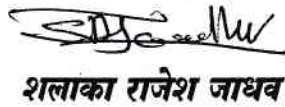 शलाका राजेश जाधव